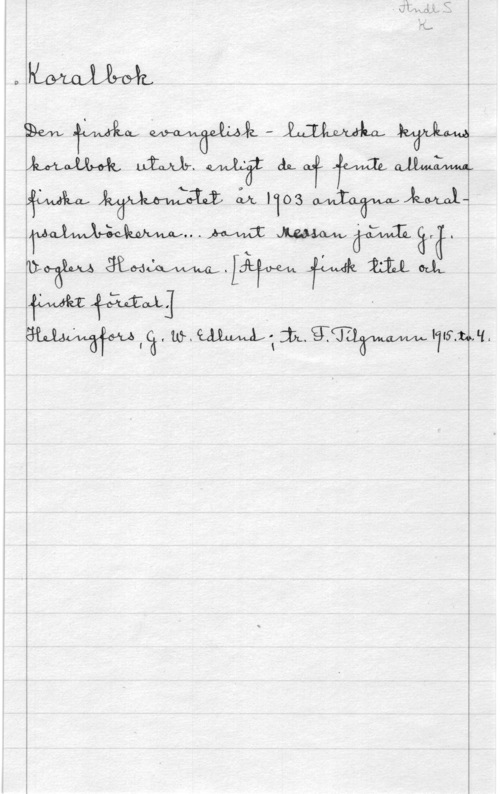 Andl S
K
Koralbok
Den finska evangelisk - lutherska kyrkans
koralbok utarb. enligt de af femte allmänna
finska kyrkomötet år 1903 antagna koral-
psalmböckerna... samt Messan jämte G. J.
Voglers Hosianna. [Äfven finsk titel och
finskt företal.]
Helsingfors, G. W. Edlund; tr. F. Tilgmann 1915. tv. 4.